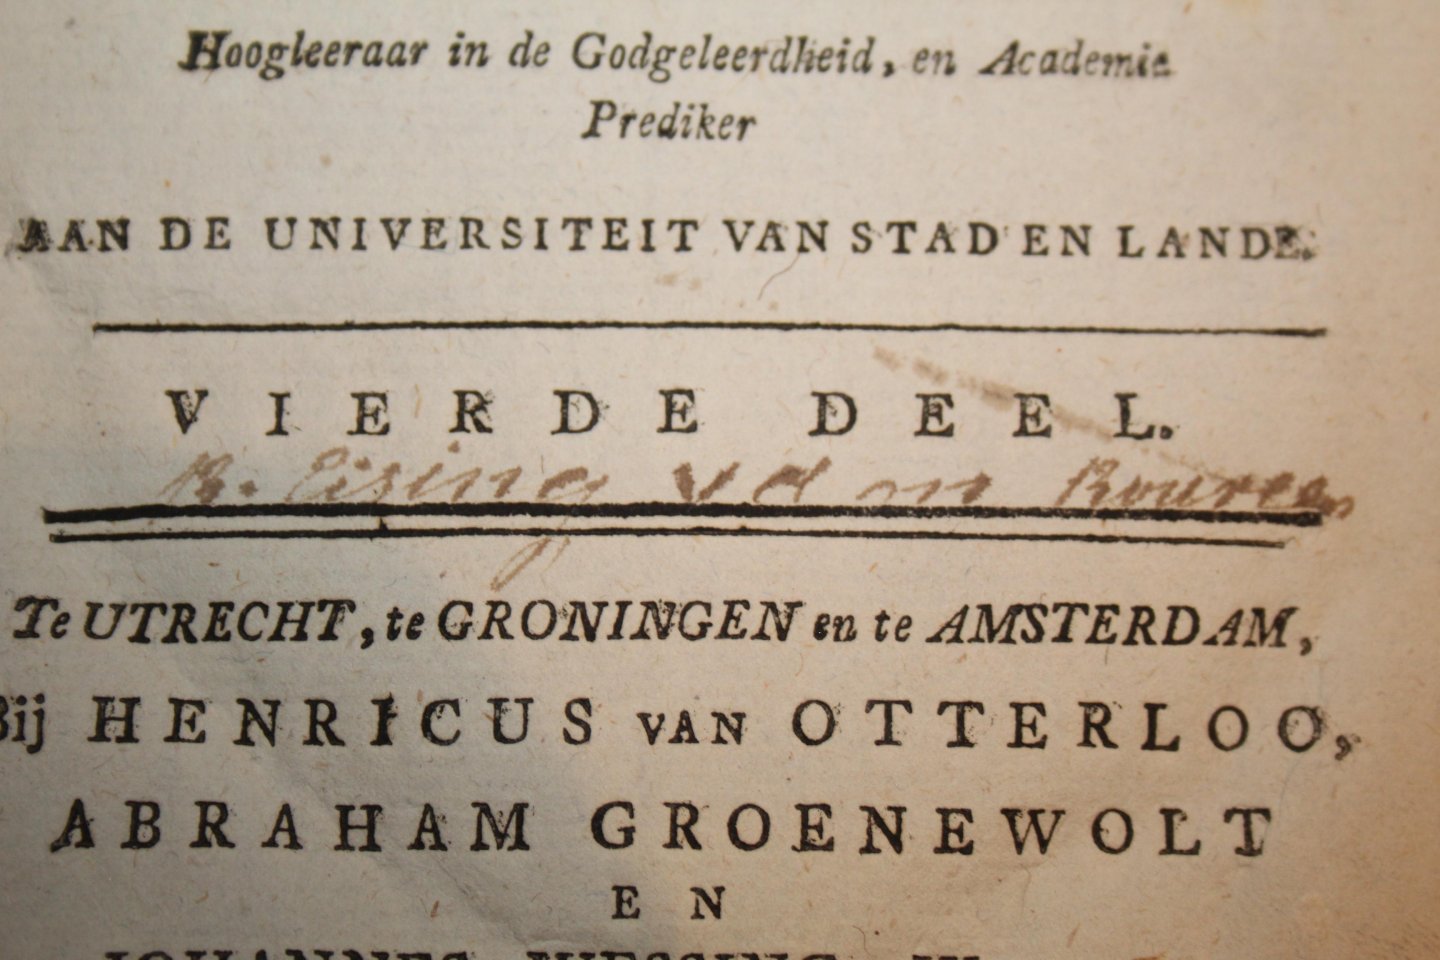 Hoogleeraar in de Godgeleerdheid, en Academie
Prediker
AAN DE UNIVERSITEIT VAN STAD EN LANDE.
VIERDE DEEL.
R. Eising
Te UTRECHT, te GRONINGEN en te AMSTERDAM,
Bij HENRICUS VAN OTTERLOO,
ABRAHAM GROENEWOLT
EN
JOHANNES WESSING